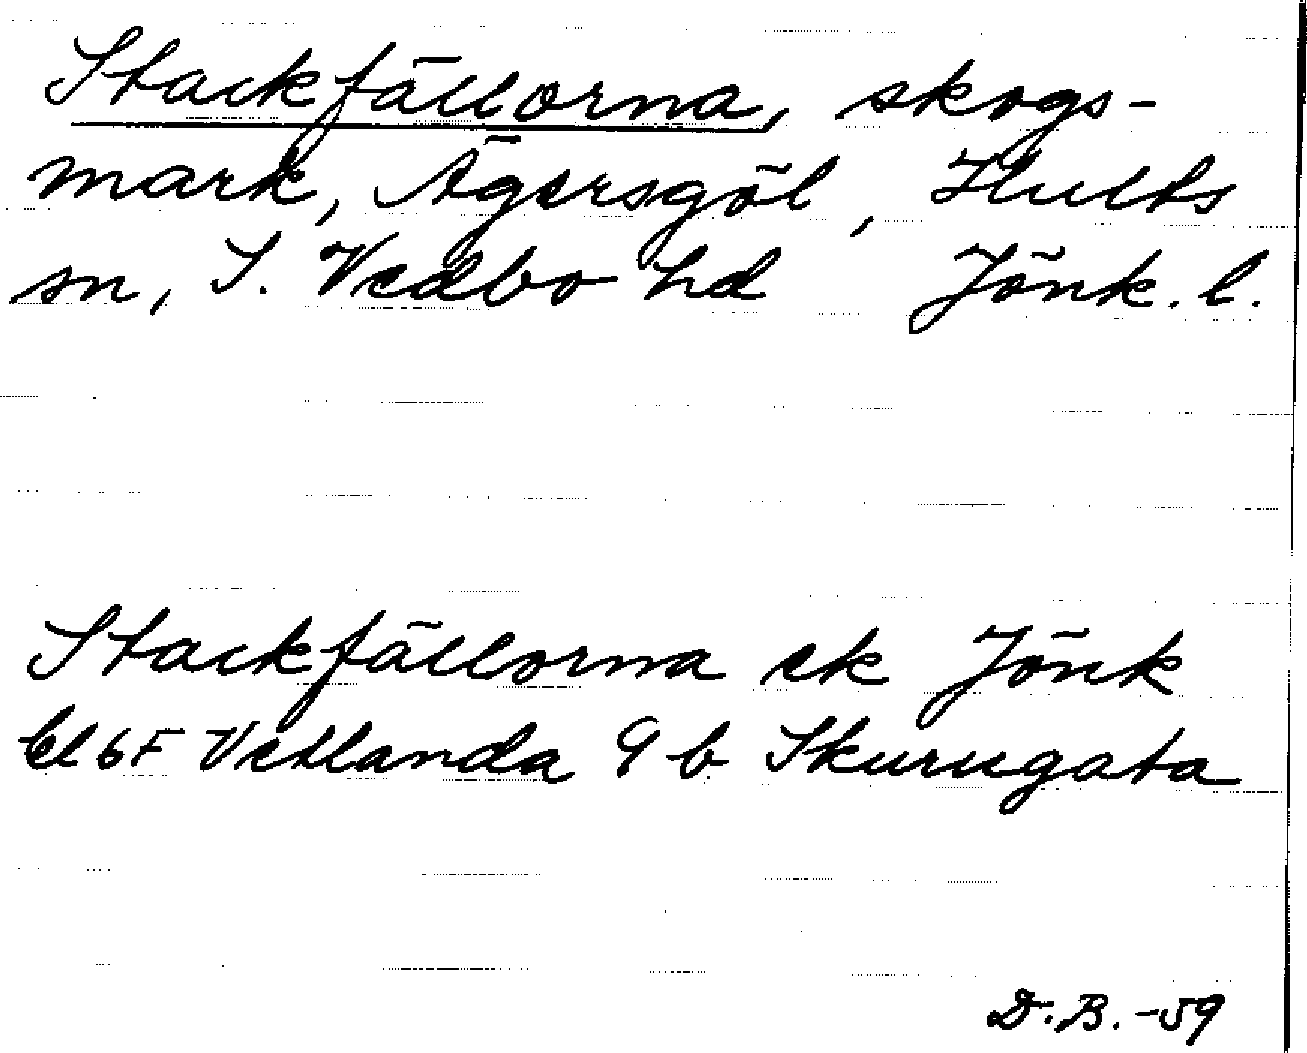 Stackfällorna, skogs-
mark, Ägersgöl, Hults
sn, S. Vedbo hd Jönk. l.
Stackfällorna ek Jönk
bl 6F Vetlanda 9 b Skurugata
D.B. -59